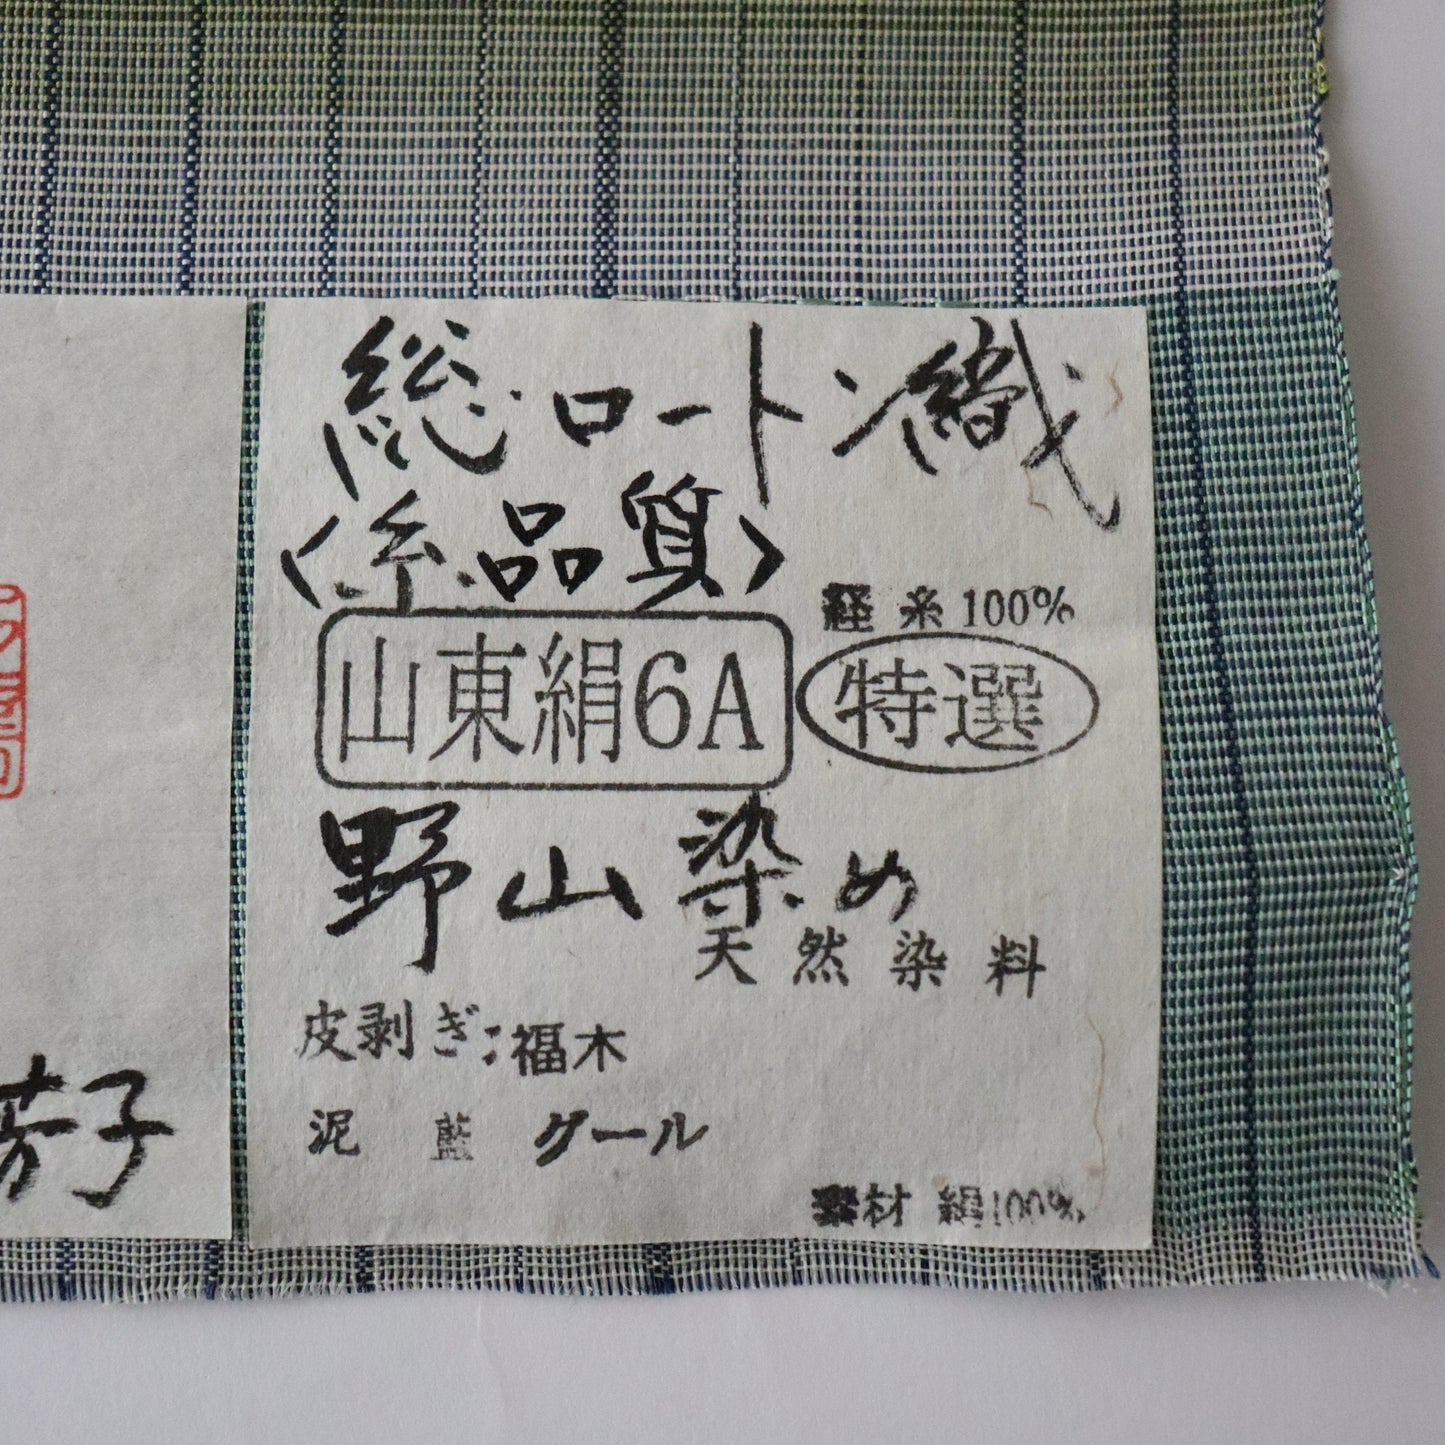 総ロートン織
〈糸品質〉
経糸100%
山東絹6A
特選
野山染め
天然染料
皮剥ぎ:福木
泥藍 グール
素材 絹100%
芳子